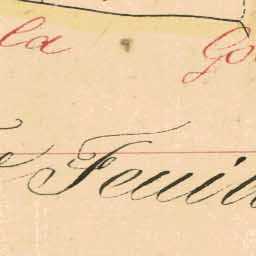 la Go
e Feuill